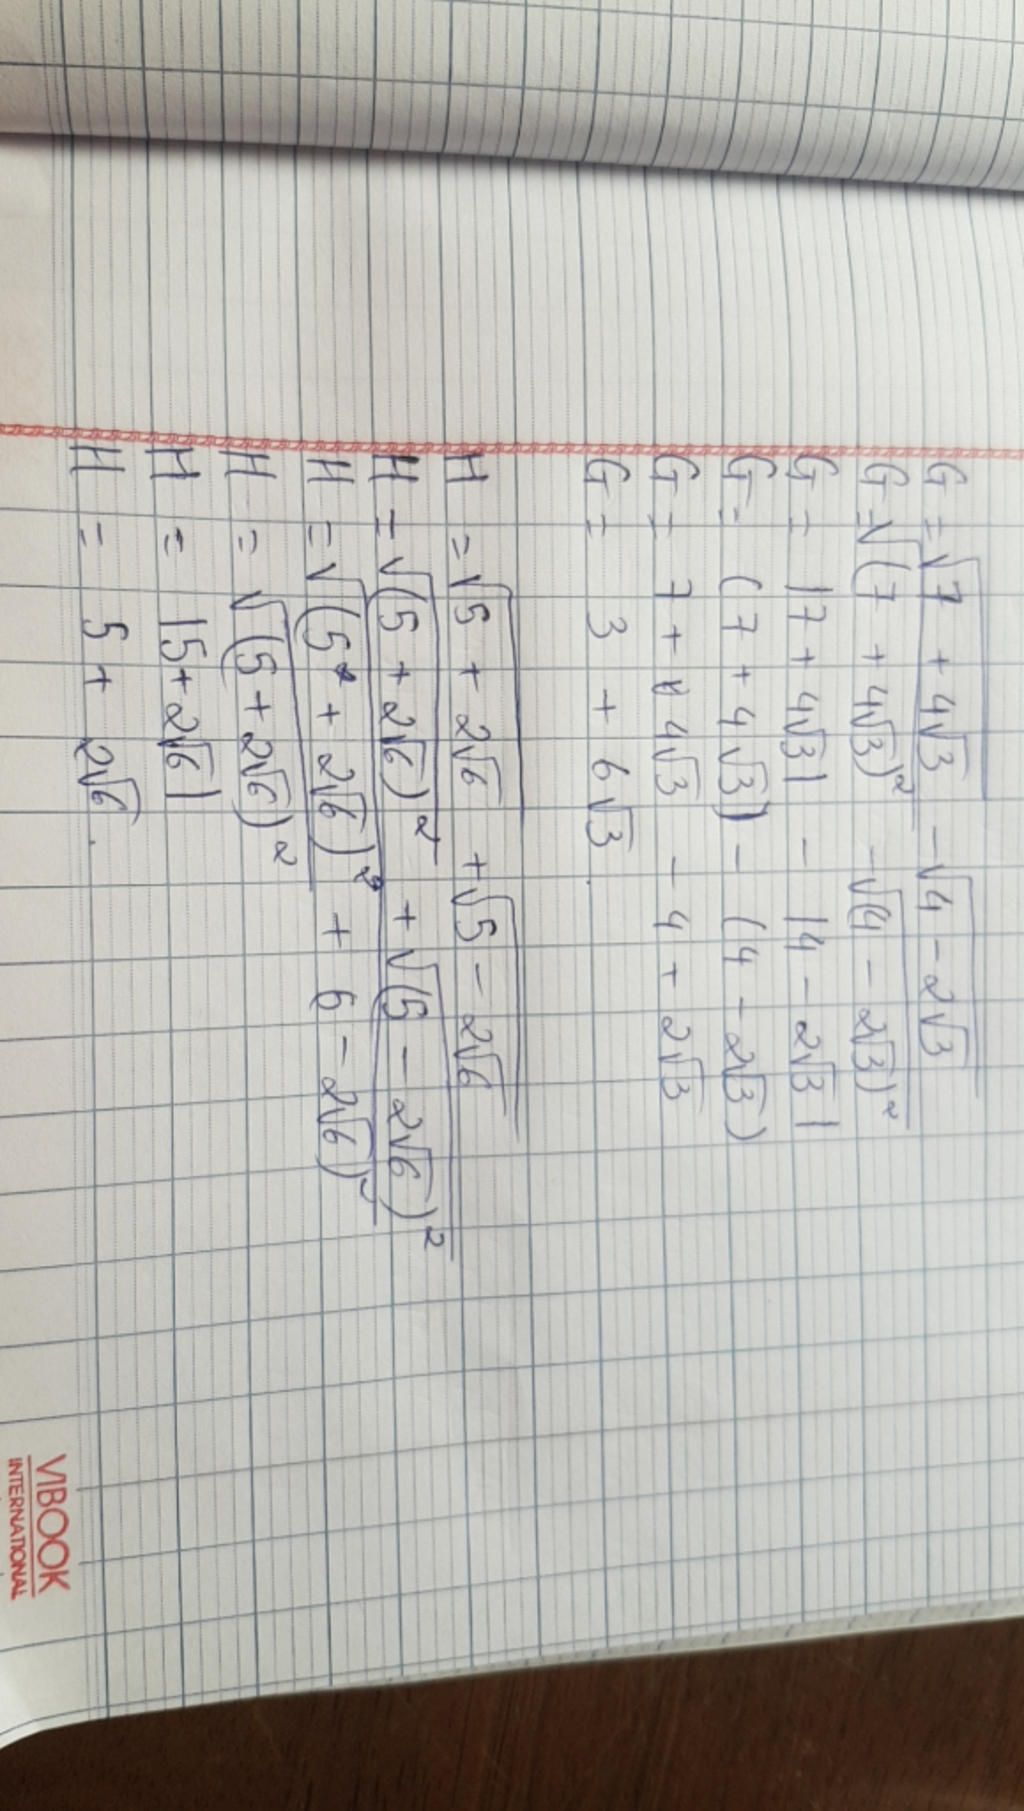 G = √(7 + 4√3) - √(4 - 2√3)
G = √(7 + 4√3)² - √(4 - 2√3)²
G = |7 + 4√3| - |4 - 2√3|
G = (7 + 4√3) - (4 - 2√3)
G = 7 + 4√3 - 4 + 2√3
G = 3 + 6√3.
H = √(5 + 2√6) + √(5 - 2√6)
H = √(5 + 2√6)² + √(5 - 2√6)²
H = √(5 + 2√6)² + 6 - 2√6)²
H = √(5 + 2√6)²
H = |5 + 2√6|
H = 5 + 2√6.
VIBOOK
INTERNATIONAL